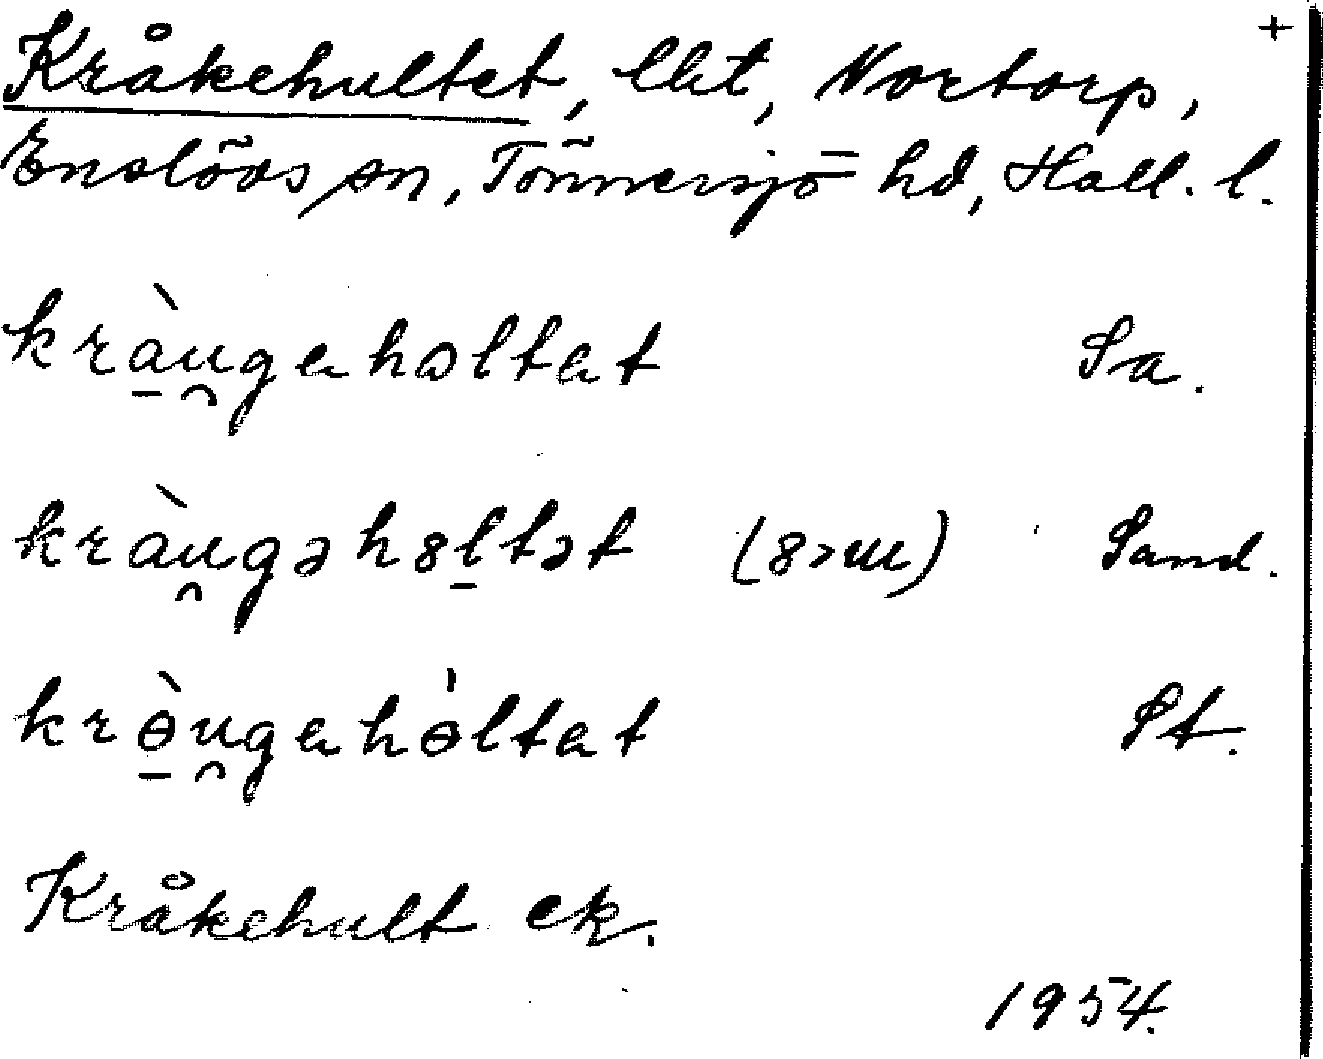 +
Kråkehultet, lht, Nortorp,
Enslövs sn, Tönnersjö hd, Hall. l.
krà̱u̯gahɷltat Sa.
kràu̯gəh8l̲tət (8>ɯ) Sand.
krɵ̱̀u̯gahɵ̀ltat St.
Kråkehult ek.
1954.